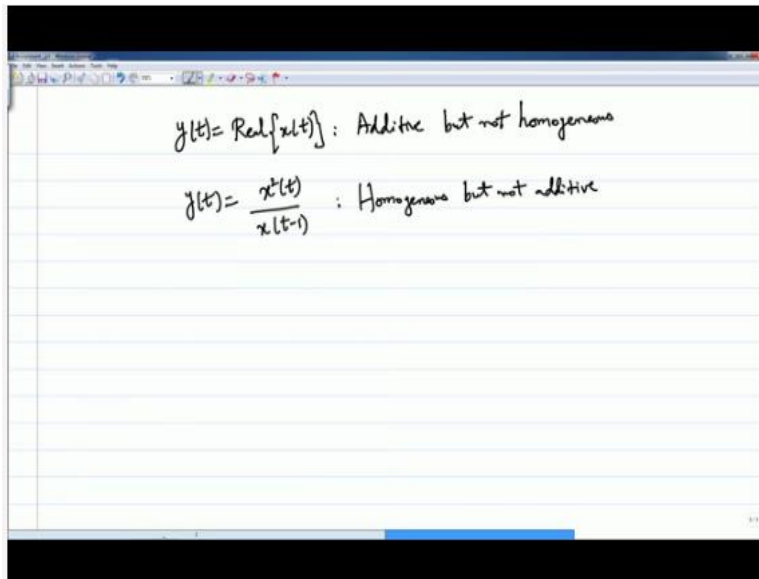 y(t) = Real{x(t)} : Additive but not homogeneous
y(t) = x²(t) / x(t-1) : Homogeneous but not additive